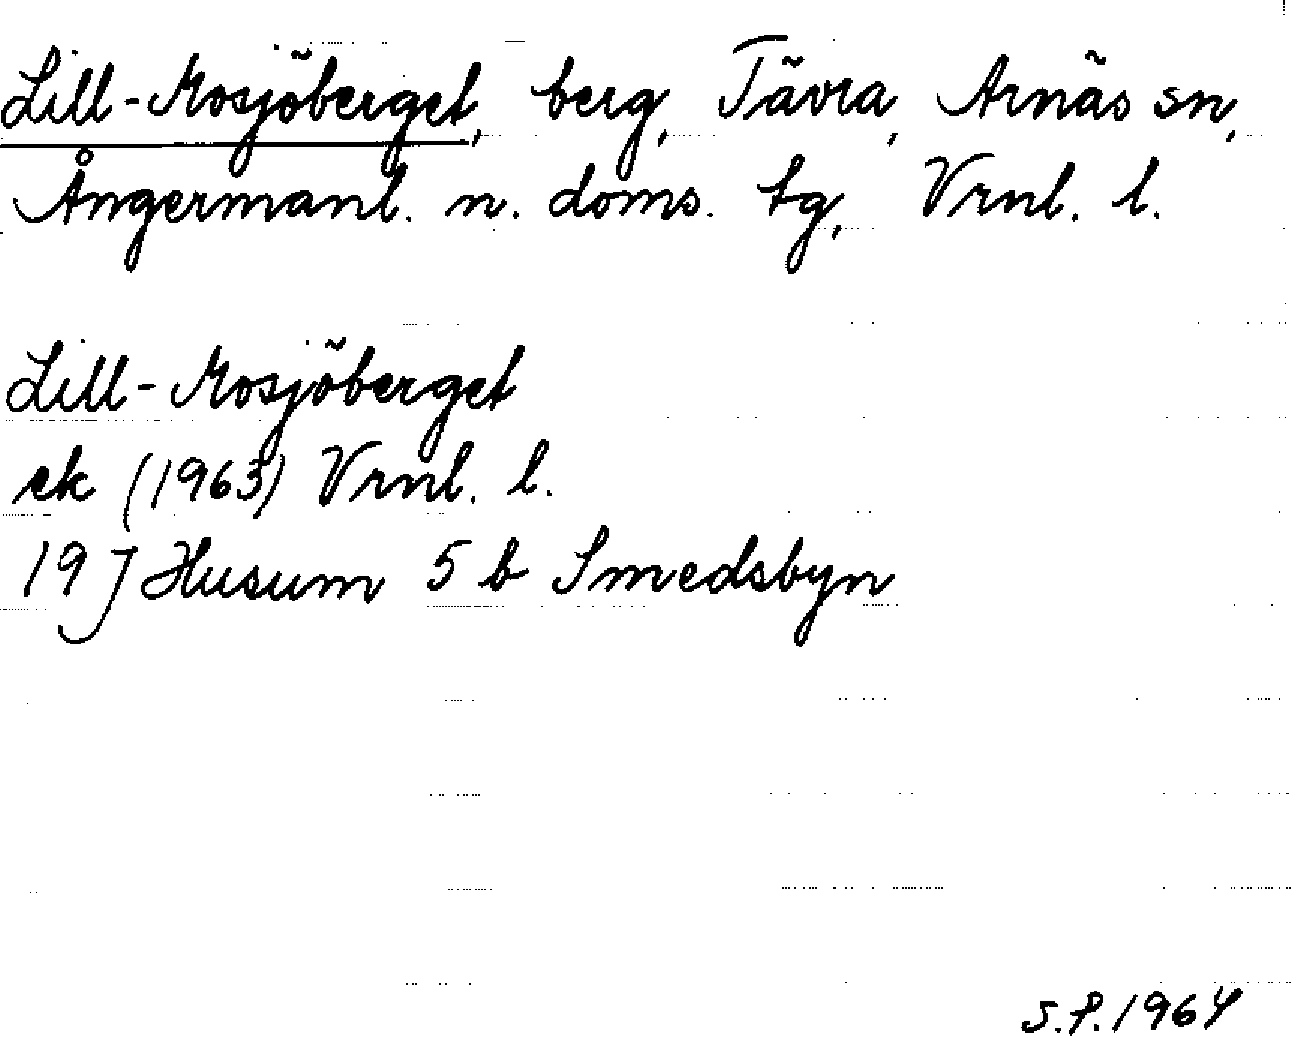 Lill-Mosjöberget, berg, Tävra, Arnäs sn,
Ångermanl. n. doms. tg, Vrnl. l.
Lill-Mosjöberget
ek (1963) Vrnl. l.
19 J Husum 5 b Smedsbyn
S.P. 1964